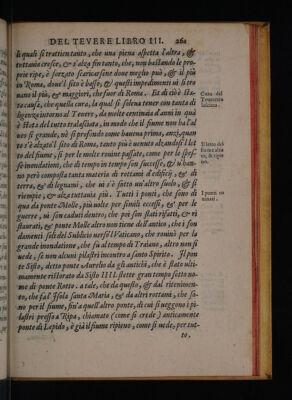 DEL TEVERE LIBRO III. 261
li quali si trattien tanto, che una piena aspetta l'altra, &
tuttavia cresce, & s'alza fin tanto, che, non bastando le pro-
prie ripe, è forzato scaricarsene dove meglio può, & il più
in Roma, dove'l sito è basso, & questi impedimenti vi so-
no più, & maggiori, che fuor di Roma. Et di ciò è sta-
ta causa, che quella cura, la qual si soleva tener con tanta di
ligenza intorno al Tevere, da molte centinaia d'anni in quà
è stata del tutto tralasciata, in modo che il fiume non ha l'al
veo sì grande, nè sì profondo come haveva prima, anzi, quan
to s'è alzato'l sito di Roma, tanto più è venuto alzandosi il let
to del fiume, sì per le molte rovine passate, come per le spes-
se inondationi, che di tempo in tempo son successe, &
però composta tanta materia di rottami d'edificij, & di
terra, & di legnami, che vi s'è fatto un'altro suolo, & si
riempie, & alza tuttavia più. Tutti i ponti, che sono di
quà da ponte Molle, più volte per simili eccessi, & per le
guerre, vi son caduti dentro, che poi son stati rifatti, & ri
staurati, & ponte Molle altro non tiene dell'antico, che i fon
damenti soli del Sublicio verso'l Vaticano, che rovinò per la
grande inondatione, che fù al tempo di Traiano, altro non si
vede, se non alcuni pilastri incontro a santo Spirito. Il pon
te Sisto, detto ponte Aurelio da gli antichi, che è stato ulti-
mamente ristorato da Sisto IIII. stette gran tempo sotto no-
me di ponte Rotto. a tale, che da questo, & dal ritenimen-
to, che fa l'Isola santa Maria, & da altri rottami, che so-
no per il fiume, fin'a quell'altro ponte, di cui si veggono i pi-
lastri presso a Ripa, chiamato (come si crede) anticamente
ponte di Lepido, è già il fiume ripieno, come si vede, per tut-
to,
Cura del
Tevere tra
lasciata.
Il letto del
fiume alza
to, & ripie
no.
I ponti ro
vinati.